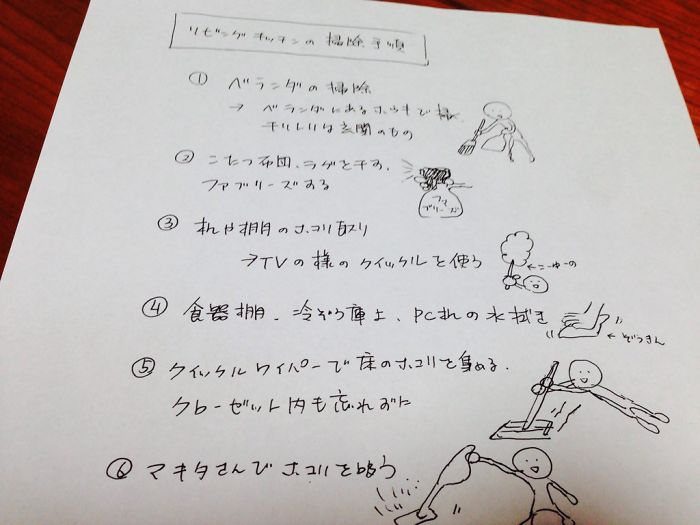 リビングキッチンの掃除手順
① ベランダの掃除
→ ベランダにあるホウキで掃く
チリトリは玄関のもの
② こたつ布団、ラグを干す、
ファブリーズする
ファ
ブリーズ
③ 机や棚のホコリ取り
→TVの横のクイックルを使う
←こーゆーの
④ 食器棚、冷ぞう庫上、PC机の水拭き
←ぞうきん
⑤ クイックルワイパーで床のホコリを集める、
クローゼット内も忘れずに
⑥ マキタさんでホコリを吸う